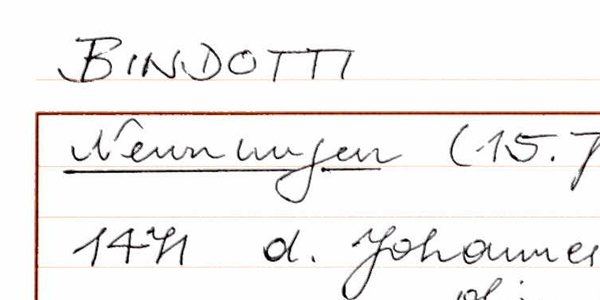 BINDOTTI
Nennungen (15.
1471 d. Johannes